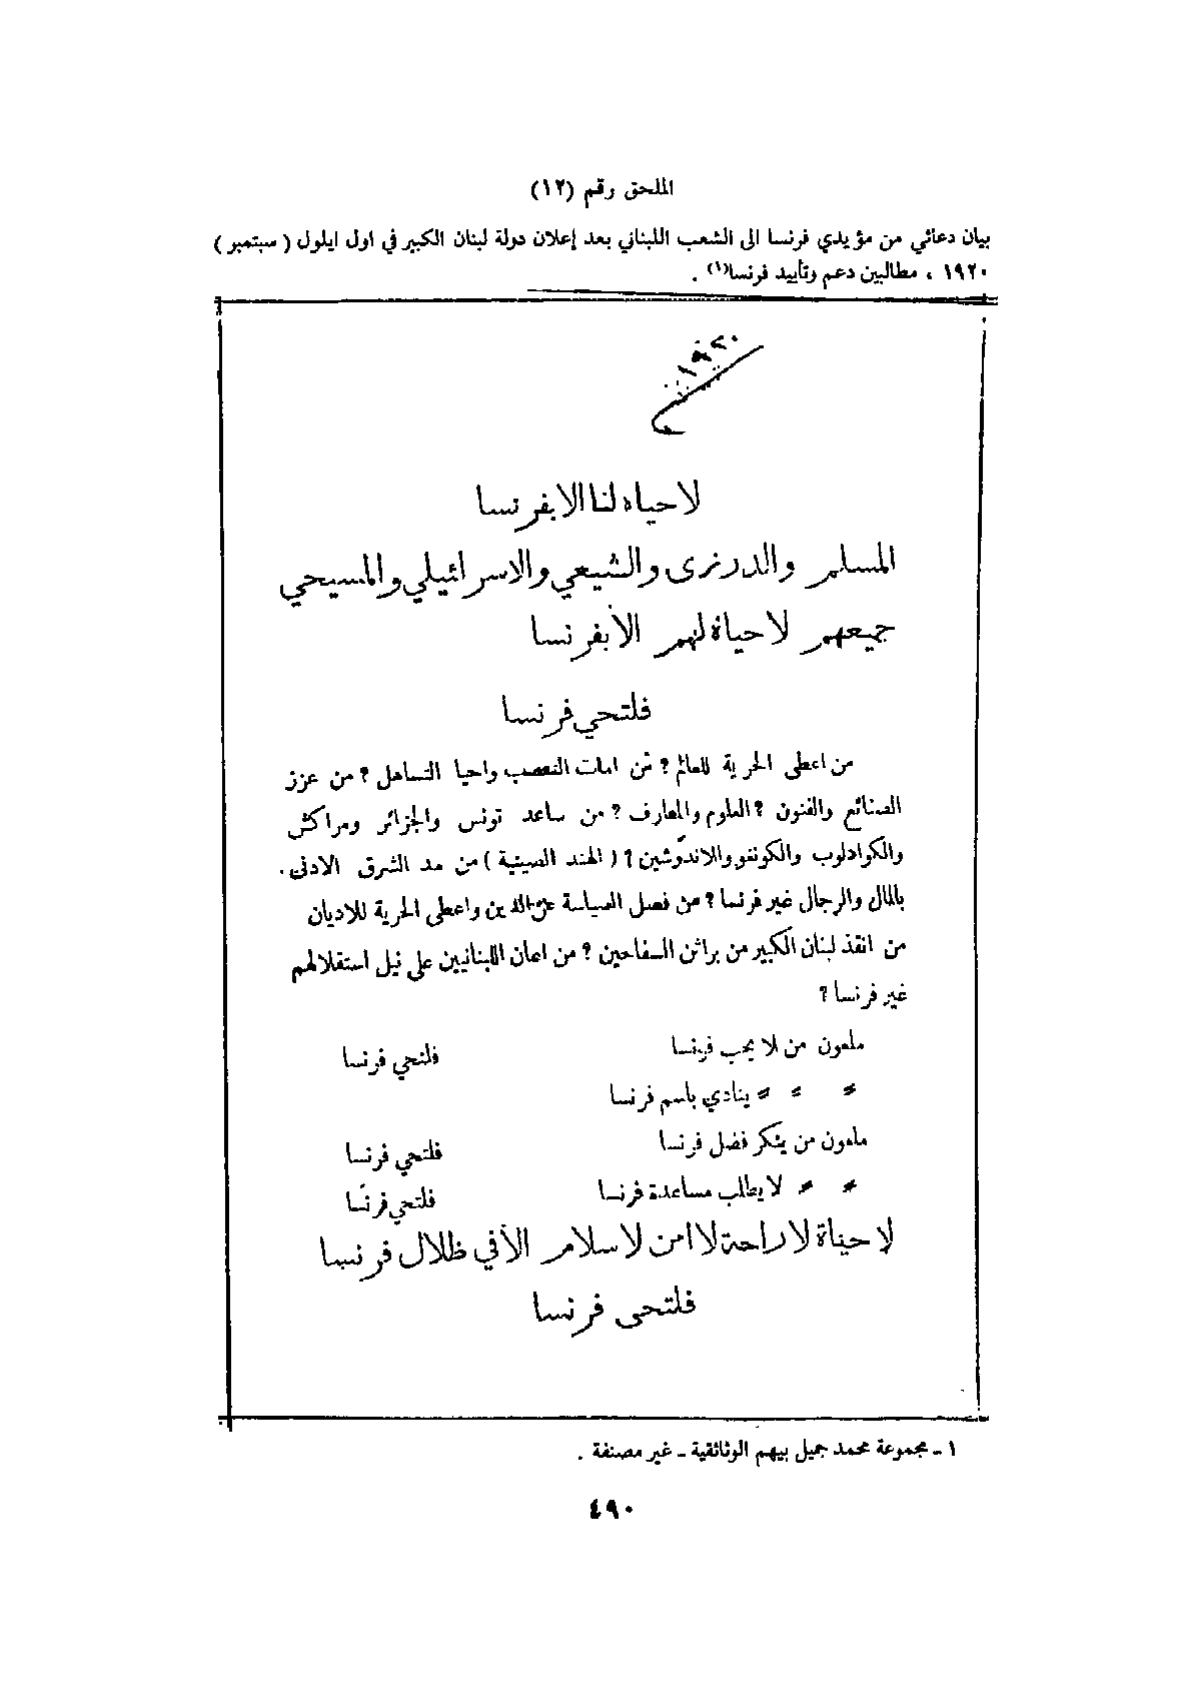 الملحق رقم (١٢)
بيان دعائي من مؤيدي فرنسا الى الشعب اللبناني بعد إعلان دولة لبنان الكبير في اول ايلول ( سبتمبر )
١٩٢٠ ، مطالبين دعم وتأييد فرنسا(١) .
١٩٢٠
لا حياه لنا الا بفرنسا
المسلم والدرزى والشيعي والاسرائيلي والمسيحي
جميعهم لا حياة لهم الا بفرنسا
فلتحي فرنسا
من اعطى الحرية للعالم ؟ من امات التعصب واحيا التساهل ؟ من عزز
الصنائع والفنون ؟ العلوم والمعارف ؟ من ساعد تونس والجزائر ومراكش
والكوادلوب والكونغو والاندوشين ؟ ( الهند الصينية ) من مد الشرق الادنى .
بالمال والرجال غير فرنسا ؟ من فصل السياسة عن الدين واعطى الحرية للاديان
من انقذ لبنان الكبير من براثن السفاحين ؟ من اعان اللبنانيين على نيل استقلالهم
غير فرنسا ؟
ملعون من لا يحب فرنسا فلتحي فرنسا
" " " ينادي باسم فرنسا
ملعون من ينكر فضل فرنسا فلتحي فرنسا
" " لا يطلب مساعدة فرنسا فلتحي فرنسا
لا حياة لا راحة لا امن لا سلام الا في ظلال فرنسا
فلتحى فرنسا
١ ـ مجموعة محمد جميل بيهم الوثائقية ـ غير مصنفة .
٤٩٠